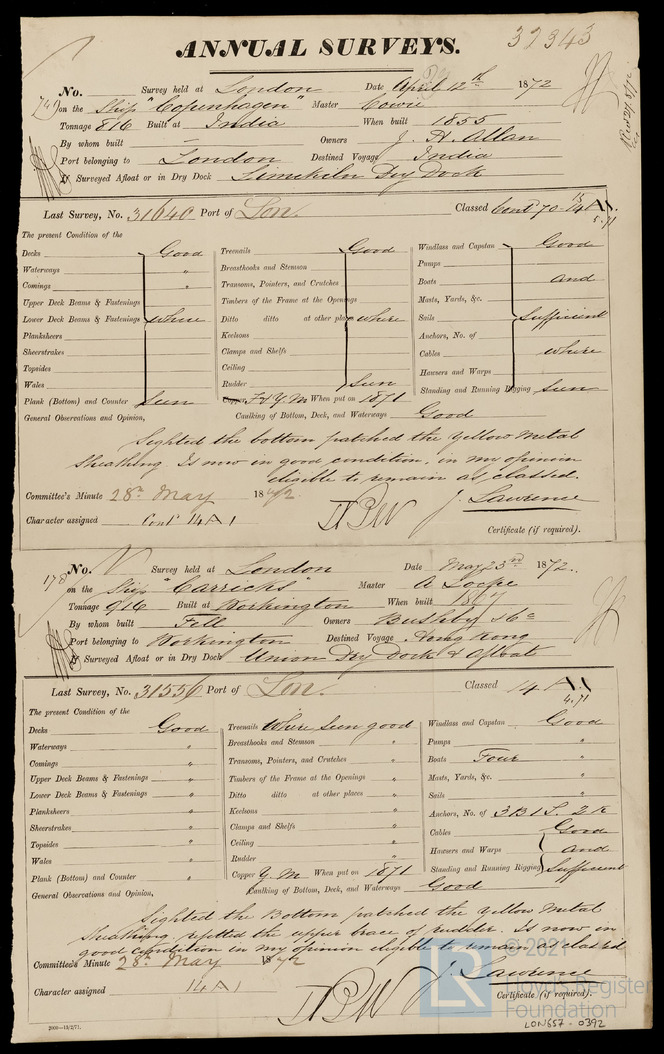 ANNUAL SURVEYS.
32343
No. 749 Survey held at London Date April 12th 1872
on the Ship "Copenhagen" Master Cowie
Tonnage 816 Built at India When built 1855
By whom built — Owners J. H. Allan
Port belonging to London Destined Voyage India
If Surveyed Afloat or in Dry Dock Limekiln Dry Dock
Last Survey, No. 31640 Port of Lon. Classed Cont 70-14A1.
5.71
The present Condition of the
Decks Good
Waterways "
Comings
Upper Deck Beams & Fastenings
Lower Deck Beams & Fastenings where
Planksheers
Sheerstrakes
Topsides
Wales
Plank (Bottom) and Counter Seen
General Observations and Opinion,
Treenails Good
Breasthooks and Stemson
Transoms, Pointers, and Crutches
Timbers of the Frame at the Openings
Ditto ditto at other places where
Keelsons
Clamps and Shelfs
Ceiling
Rudder Seen
Copper F & Y.M When put on 1871
Caulking of Bottom, Deck, and Waterways Good
Windlass and Capstan Good
Pumps
Boats and
Masts, Yards, &c.
Sails Sufficient
Anchors, No. of
Cables where
Hawsers and Warps
Standing and Running Rigging seen
Sighted the bottom patched the Yellow Metal
Sheathing. Is now in good condition, in my opinion
eligible to remain as classed.
Committee's Minute 28th May 1872.
J. Lawrence
Character assigned Cont 14A1
Certificate (if required).
No. 178 Survey held at London Date May 23rd 1872.
on the Ship "Carricks" Master A
Tonnage 916 Built at Workington When built 1867
By whom built Fell Owners Bushby & Co
Port belonging to Workington Destined Voyage Hong Kong
If Surveyed Afloat or in Dry Dock Union Dry Dock & Afloat
Last Survey, No. 31556 Port of Lon. Classed 14 A1
4.71
The present Condition of the
Decks Good
Waterways "
Comings "
Upper Deck Beams & Fastenings "
Lower Deck Beams & Fastenings "
Planksheers "
Sheerstrakes "
Topsides "
Wales "
Plank (Bottom) and Counter "
General Observations and Opinion,
Treenails Where seen good
Breasthooks and Stemson "
Transoms, Pointers, and Crutches "
Timbers of the Frame at the Openings "
Ditto ditto at other places "
Keelsons "
Clamps and Shelfs "
Ceiling "
Rudder "
Copper Y.M When put on 1871
Caulking of Bottom, Deck, and Waterways Good
Windlass and Capstan Good
Pumps "
Boats Four "
Masts, Yards, &c. "
Sails "
Anchors, No. of 3 B 1 S. 2 K
Cables Good
Hawsers and Warps and
Standing and Running Rigging Sufficient
Sighted the Bottom patched the Yellow Metal
Sheathing, refitted the upper brace of rudder. Is now in
good condition in my opinion eligible to remain as classed
Committee's Minute 28th May 1872
J. Lawrence
Character assigned 14A1
Certificate (if required).
2000—13/2/71.
© 2021
LR
Lloyd's Register
Foundation
LON657-0392